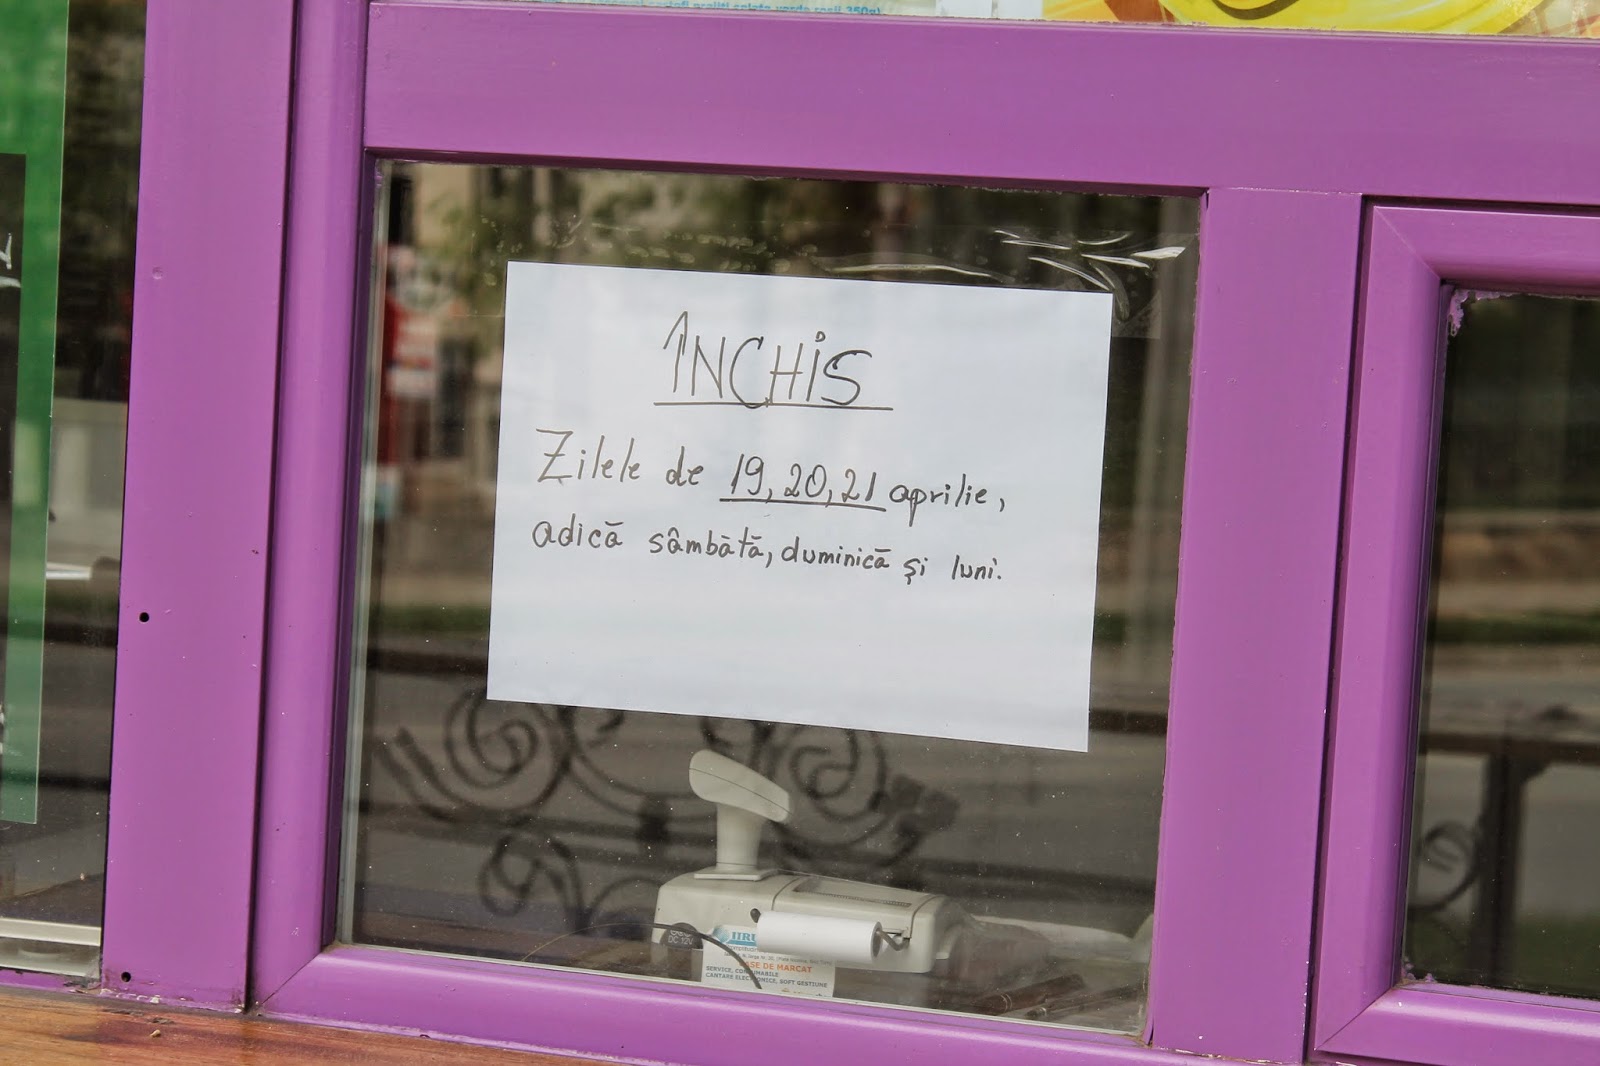 ÎNCHIS
Zilele de 19, 20, 21 aprilie,
adică sâmbătă, duminică și luni.
DC 12V
CASE DE MARCAT
SERVICE, CONSUMABILE
CANTARE ELECTRONICE, SOFT GESTIUNE